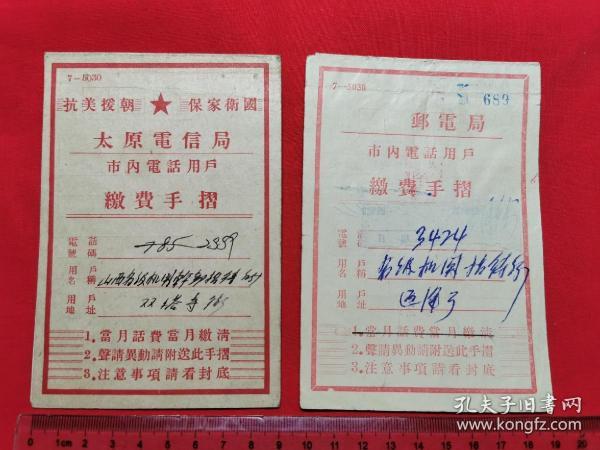 7-5030
抗美援朝 ★ 保家衛國
太原電信局
市內電話用戶
繳費手摺
電話號碼
用戶名稱
用戶地址 双塔寺街
1.當月話費當月繳清
2.聲請異動請附送此手摺
3.注意事項請看封底
7-5030
689
郵電局
市內電話用戶
繳費手摺
電話號碼 3424
用戶名稱
用戶地址
1.當月話費當月繳清
2.聲請異動請附送此手摺
3.注意事項請看封底
0 1cm 2 3 4 5 6 7 8 9 10 11 12 13 14 15 16 17 18 19 20
孔夫子旧书网
kongfz.com